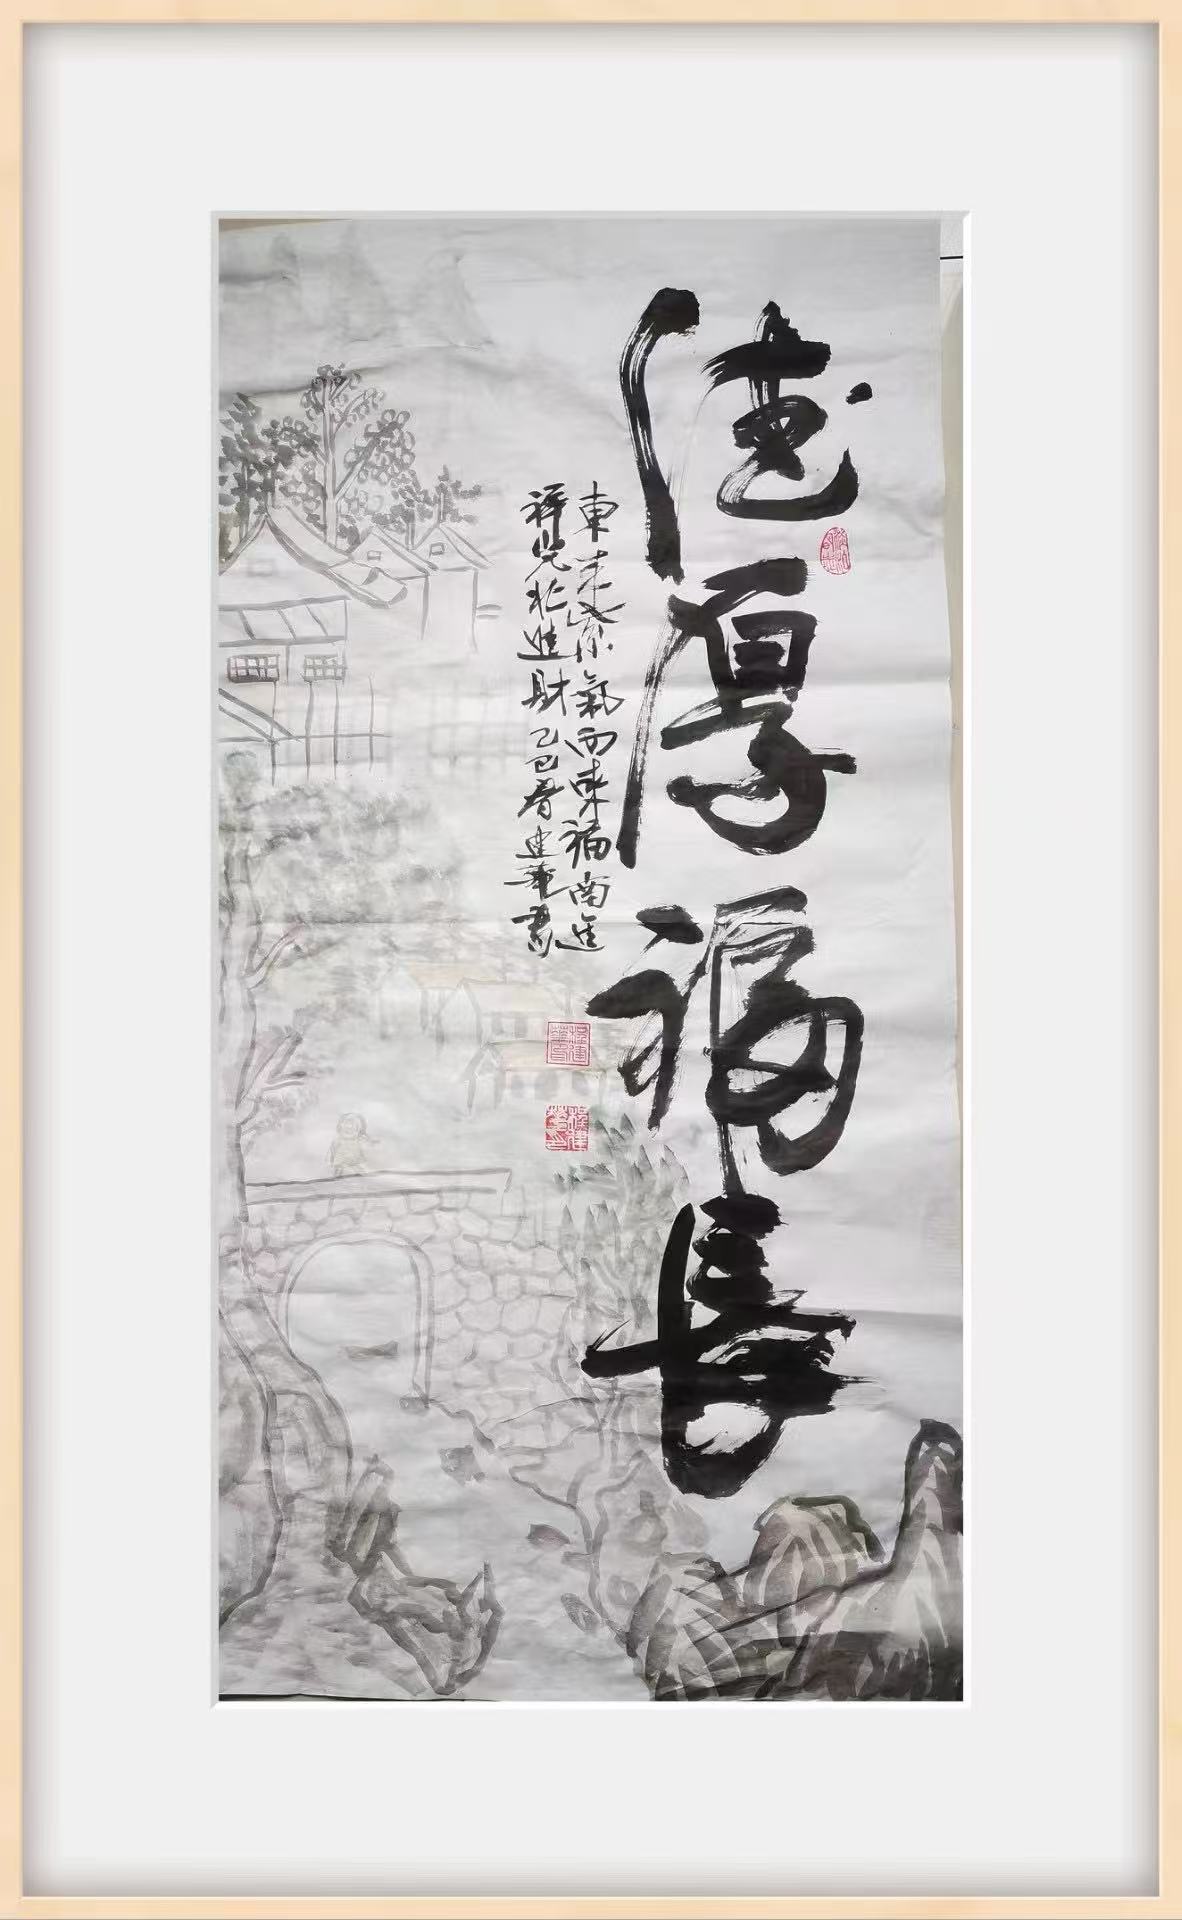 德厚福長
東来紫氣西来福南進
祥光北進財乙巳春建華書